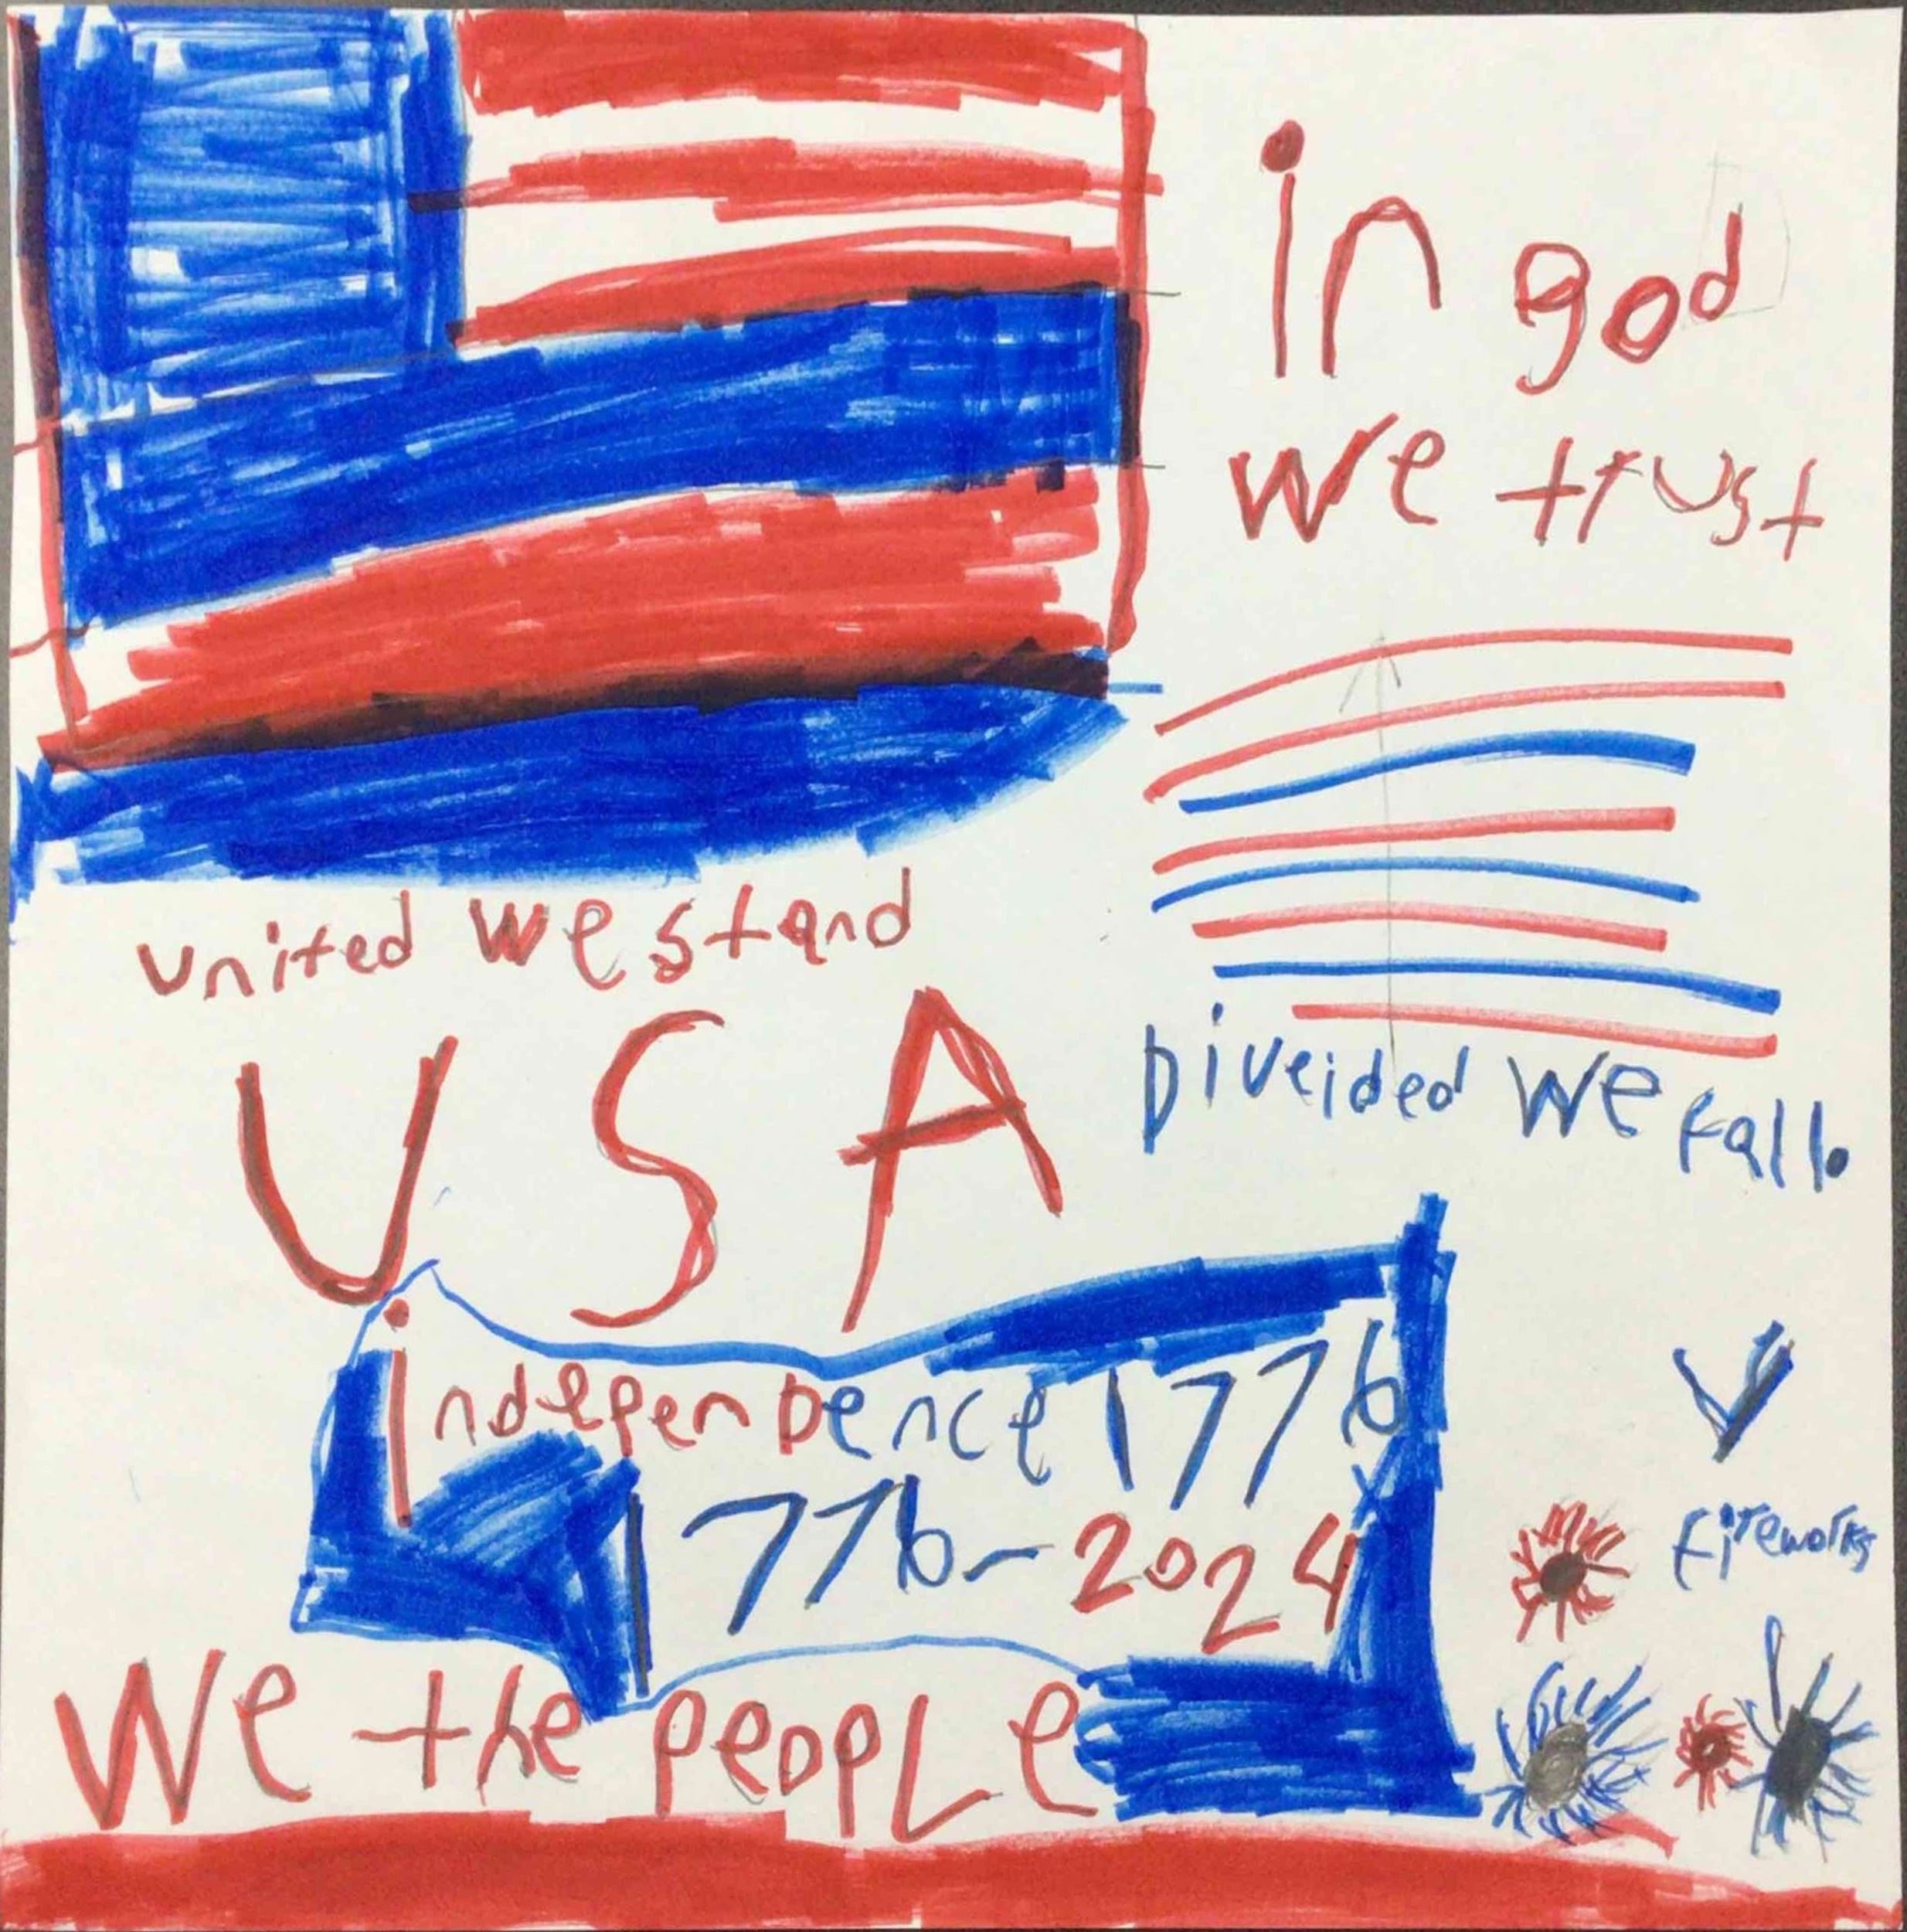 in god
we trust
united we stand
USA
Diveided we fall.
independence 1776
1776-2024
fireworks
We the peopLe